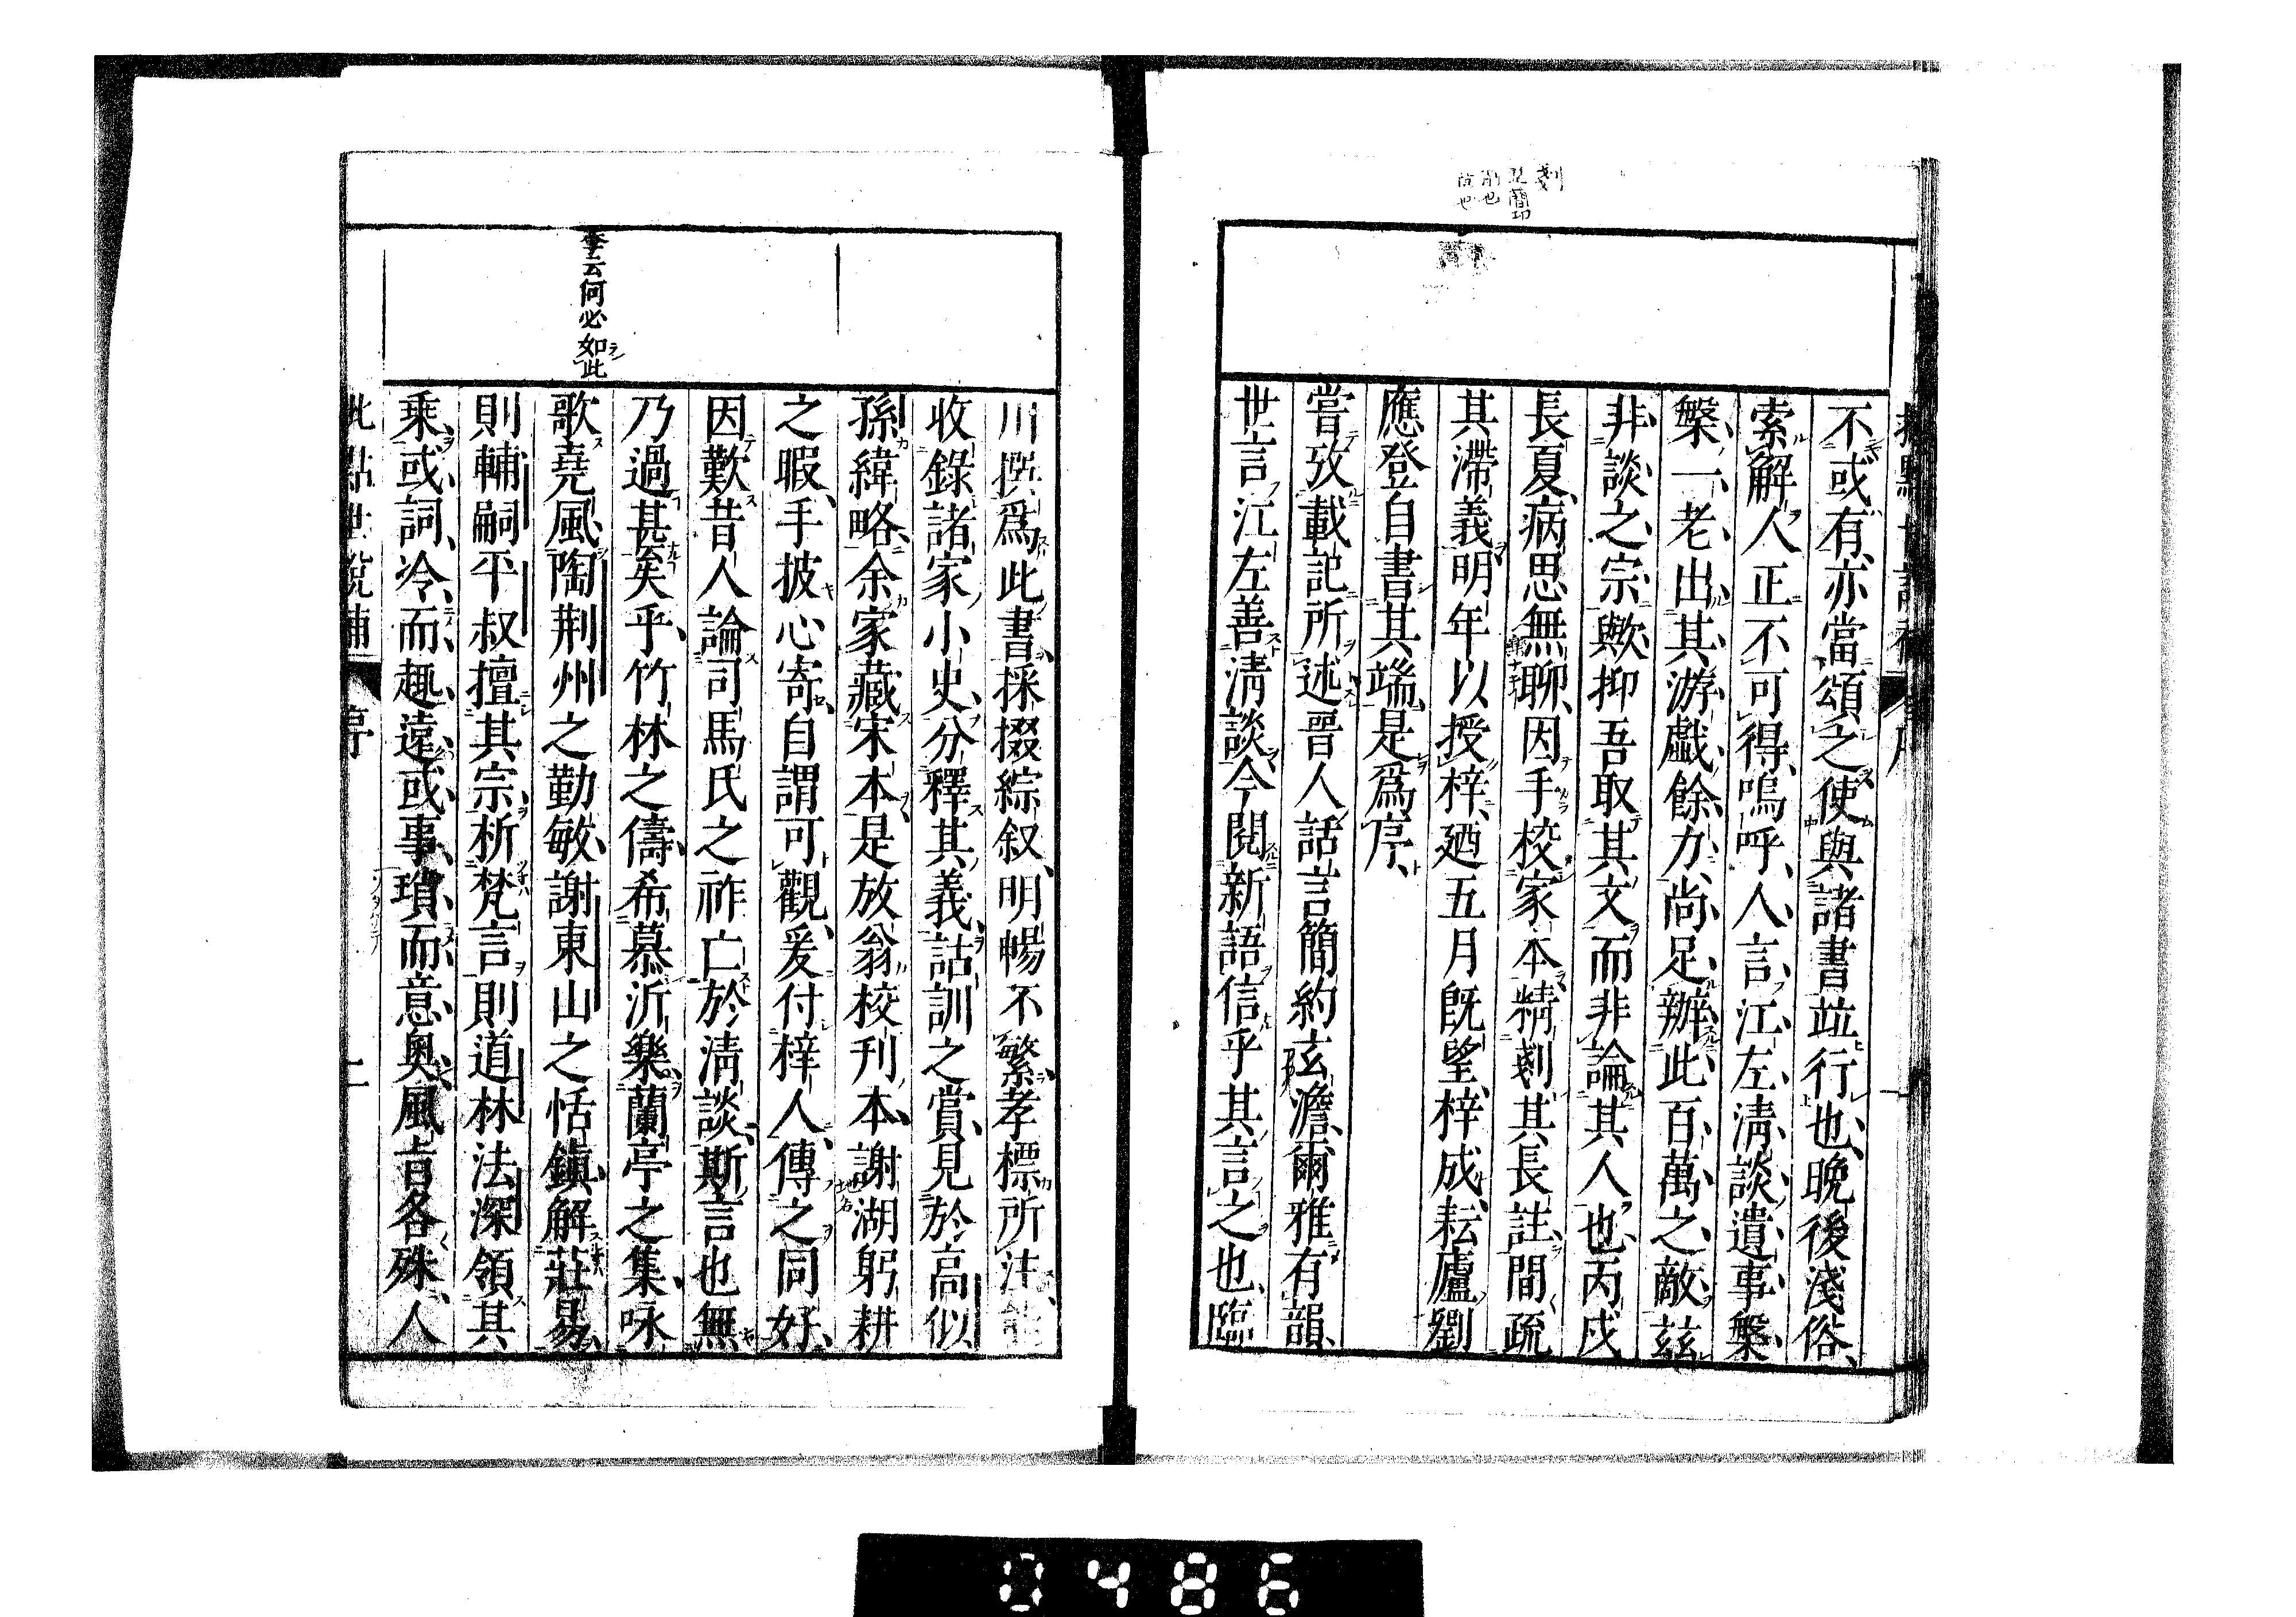 不或有亦當頌之使與諸書竝行也、晚後淺俗、
索解人正不可得、嗚呼、人言、江左清談遺事、槃
槃一老出其游戲餘力、尚足辦此百萬之敵、茲
非談之宗歟、抑吾取其文而非論其人也、丙戌
長夏、病思無聊、因手校家本、精剗其長註、間疏
其滯義、明年以授梓、廼五月既望、梓成、耘廬劉
應登自書其端、是爲序、
嘗攷載記所述晉人話言簡約玄澹、爾雅有韻、
世言江左善清談、今閱新語、信乎其言之也、臨
川撰爲此書、採掇綜叙、明暢不繁、孝標所注、能
收錄諸家小史、分釋其義、詁訓之賞、見於高似
孫緯略、余家藏宋本、是放翁校刊本、謝湖躬耕
之暇、手披心寄、自謂可觀、爰付梓人、傳之同好、
因歎昔人論司馬氏之祚亡於清談、斯言也無
乃過甚矣乎、竹林之儔、希慕沂樂、蘭亭之集、咏
歌堯風、陶荆州之勤敏、謝東山之恬鎮、解莊易、
則輔嗣平叔擅其宗、析梵言、則道林法深領其
乘、或詞冷而趣遠、或事瑣而意奥、風旨各殊、人
李云何必如此
批點世說補
序
二
0486